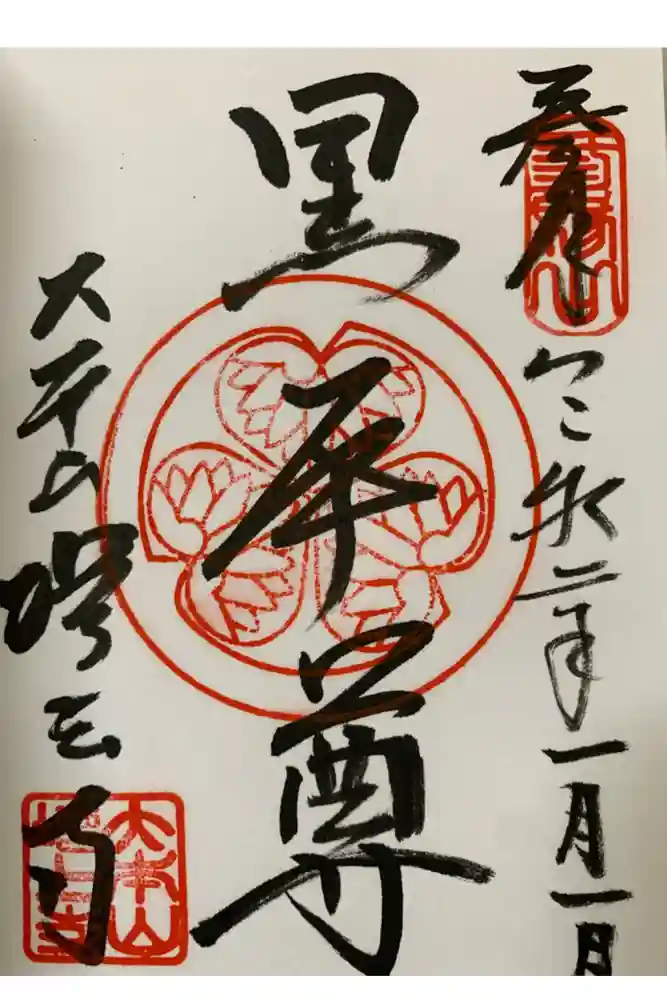 三縁山
令和二年一月一日
黒本尊
大本山増上寺
大本山
増上寺